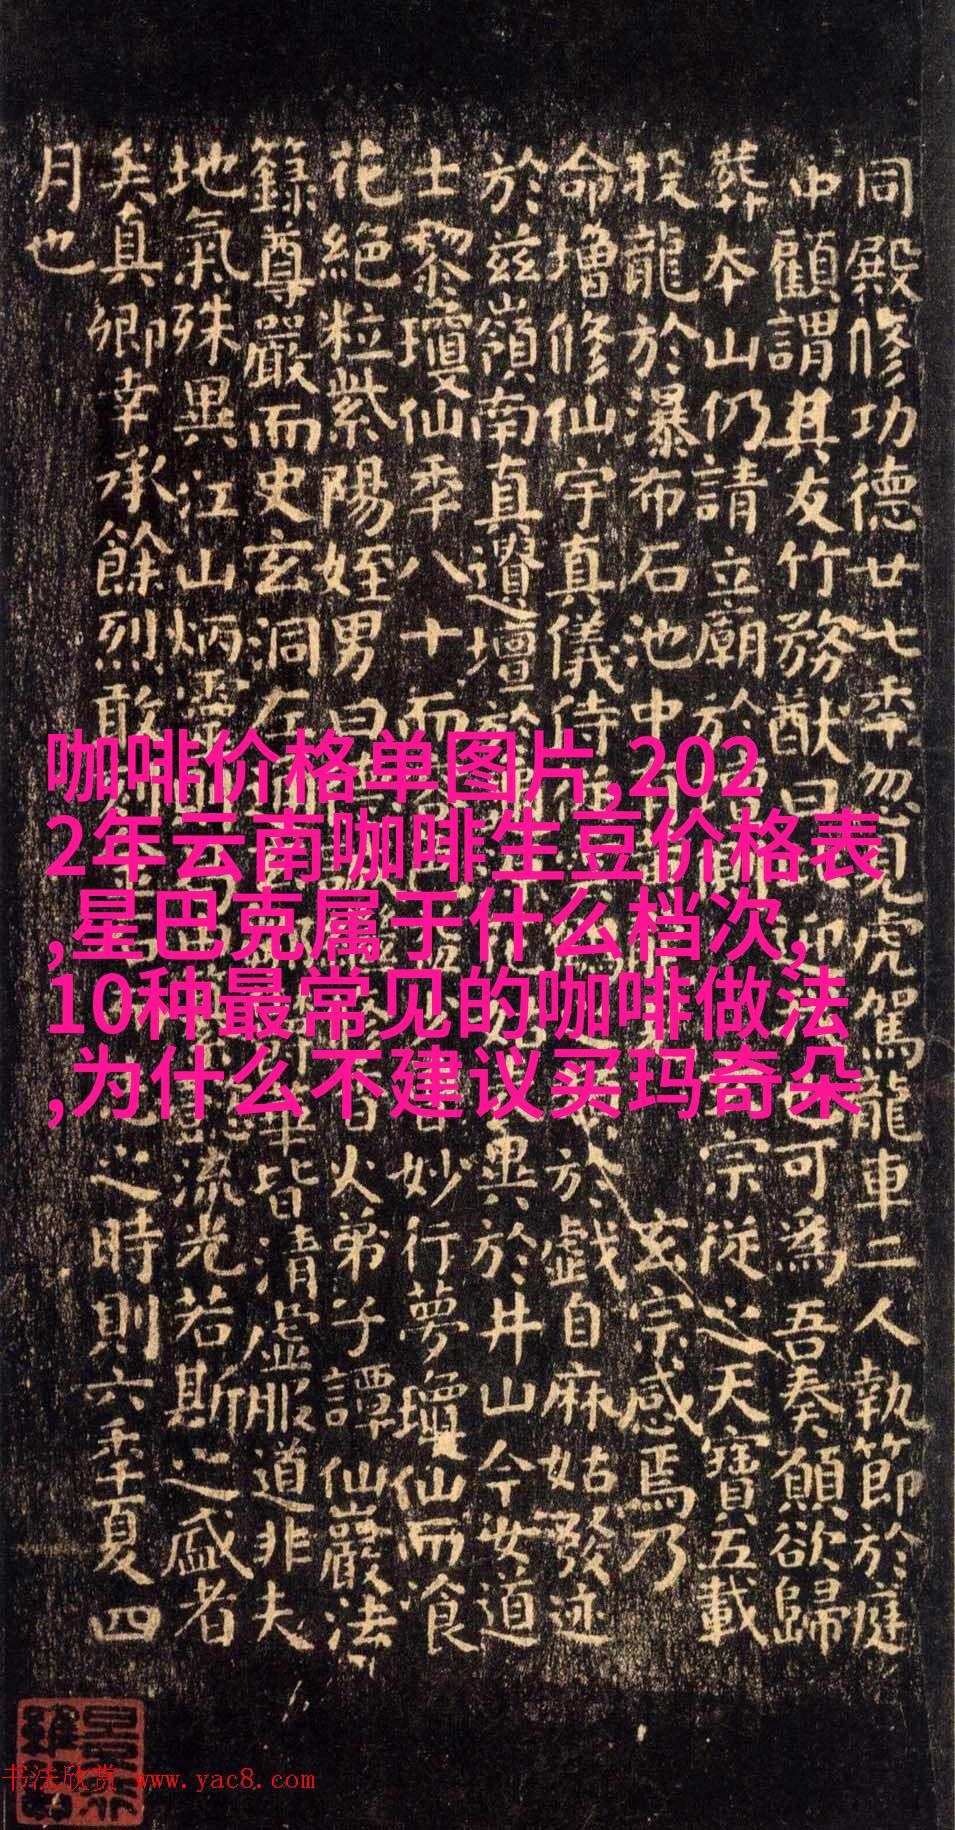 同殿修功德廿七年忽見虎駕龍車二人執節於庭
中顧謂其友竹務猷曰迎也可為吾奏願欲歸
葬本山仍請立廟於壇側宗從之天寶五載
投龍於瀑布石池中玄宗感焉乃
命增修仙宇真儀侍從於戲自麻姑發迹
於茲嶺南真遺壇於異於井山今女道
士黎瓊仙年八十而妙行夢瓊仙而飡
花絕粒紫陽姪男曰香火弟子譚仙巖法
籙尊嚴而史玄洞左華皆清虛服道非夫
地氣殊異江山炳靈懿流光若斯之盛者
矣真卿幸承餘烈敢刻之時則六年夏四
月也
咖啡价格单图片,202
2年云南咖啡生豆价格表
,星巴克属于什么档次,
10种最常见的咖啡做法
,为什么不建议买玛奇朵
书法欣赏 www.yac8.com